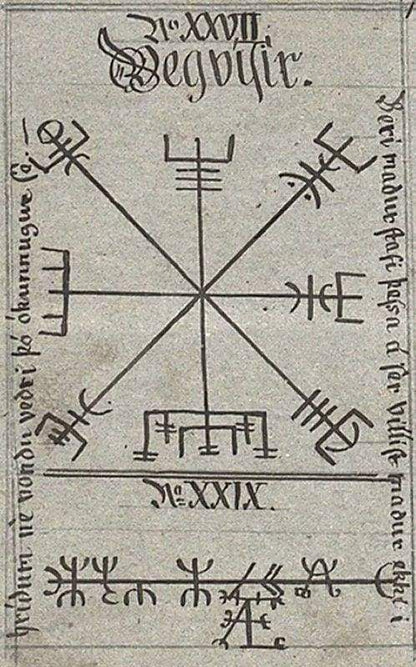 No XXVII.
Vegvísir.
Beri madur stafi þessa á sér villist madur ekki í
hrídum né vondu vedri þó ókunnugur sé.
No XXIX.